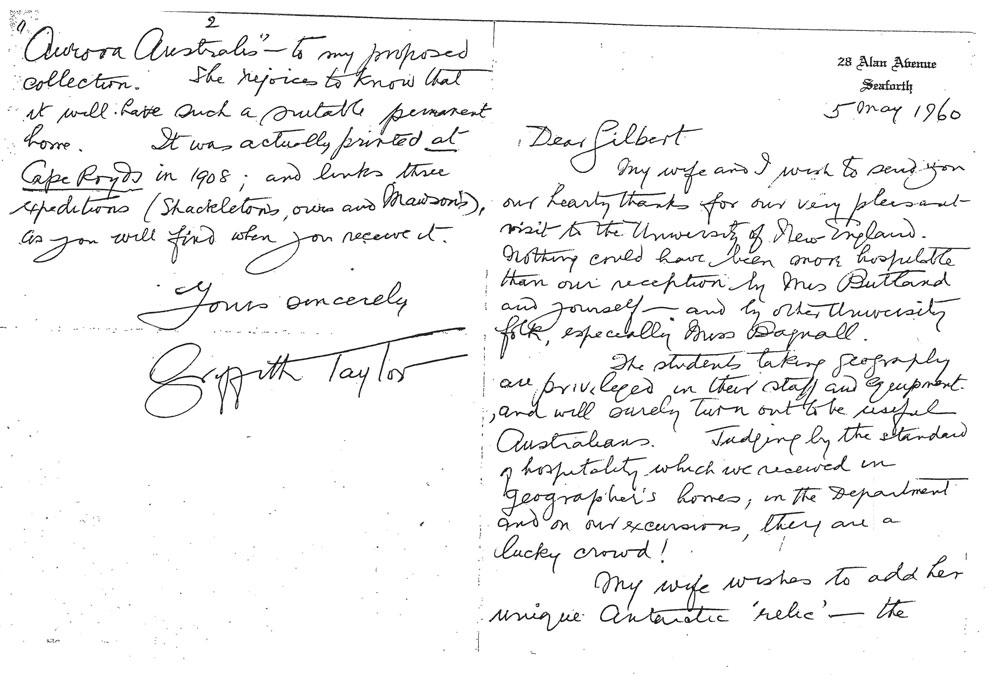 28 Alan Avenue
Seaforth
5 May 1960
Dear Gilbert
My wife and I wish to send you
our hearty thanks for our very pleasant
visit to the University of New England.
Nothing could have been more hospitable
than our reception by Mrs Butland
and yourself – and by other University
folk, especially Miss Dagnall.
The students taking geography
are privileged in their staff and equipment.
, and will surely turn out to be useful
Australians. Judging by the standard
of hospitality which we received in
geographer's homes, in the Department
and on our excursions, they are a
lucky crowd!
My wife wishes to add her
unique Antarctic 'relic' – the
2
"Aurora Australis" – to my proposed
collection. She rejoices to know that
it will have such a suitable permanent
home. It was actually printed at
Cape Royds in 1908; and links three
expeditions (Shackleton's, ours and Mawson's),
as you will find when you receive it.
Yours sincerely
Griffith Taylor